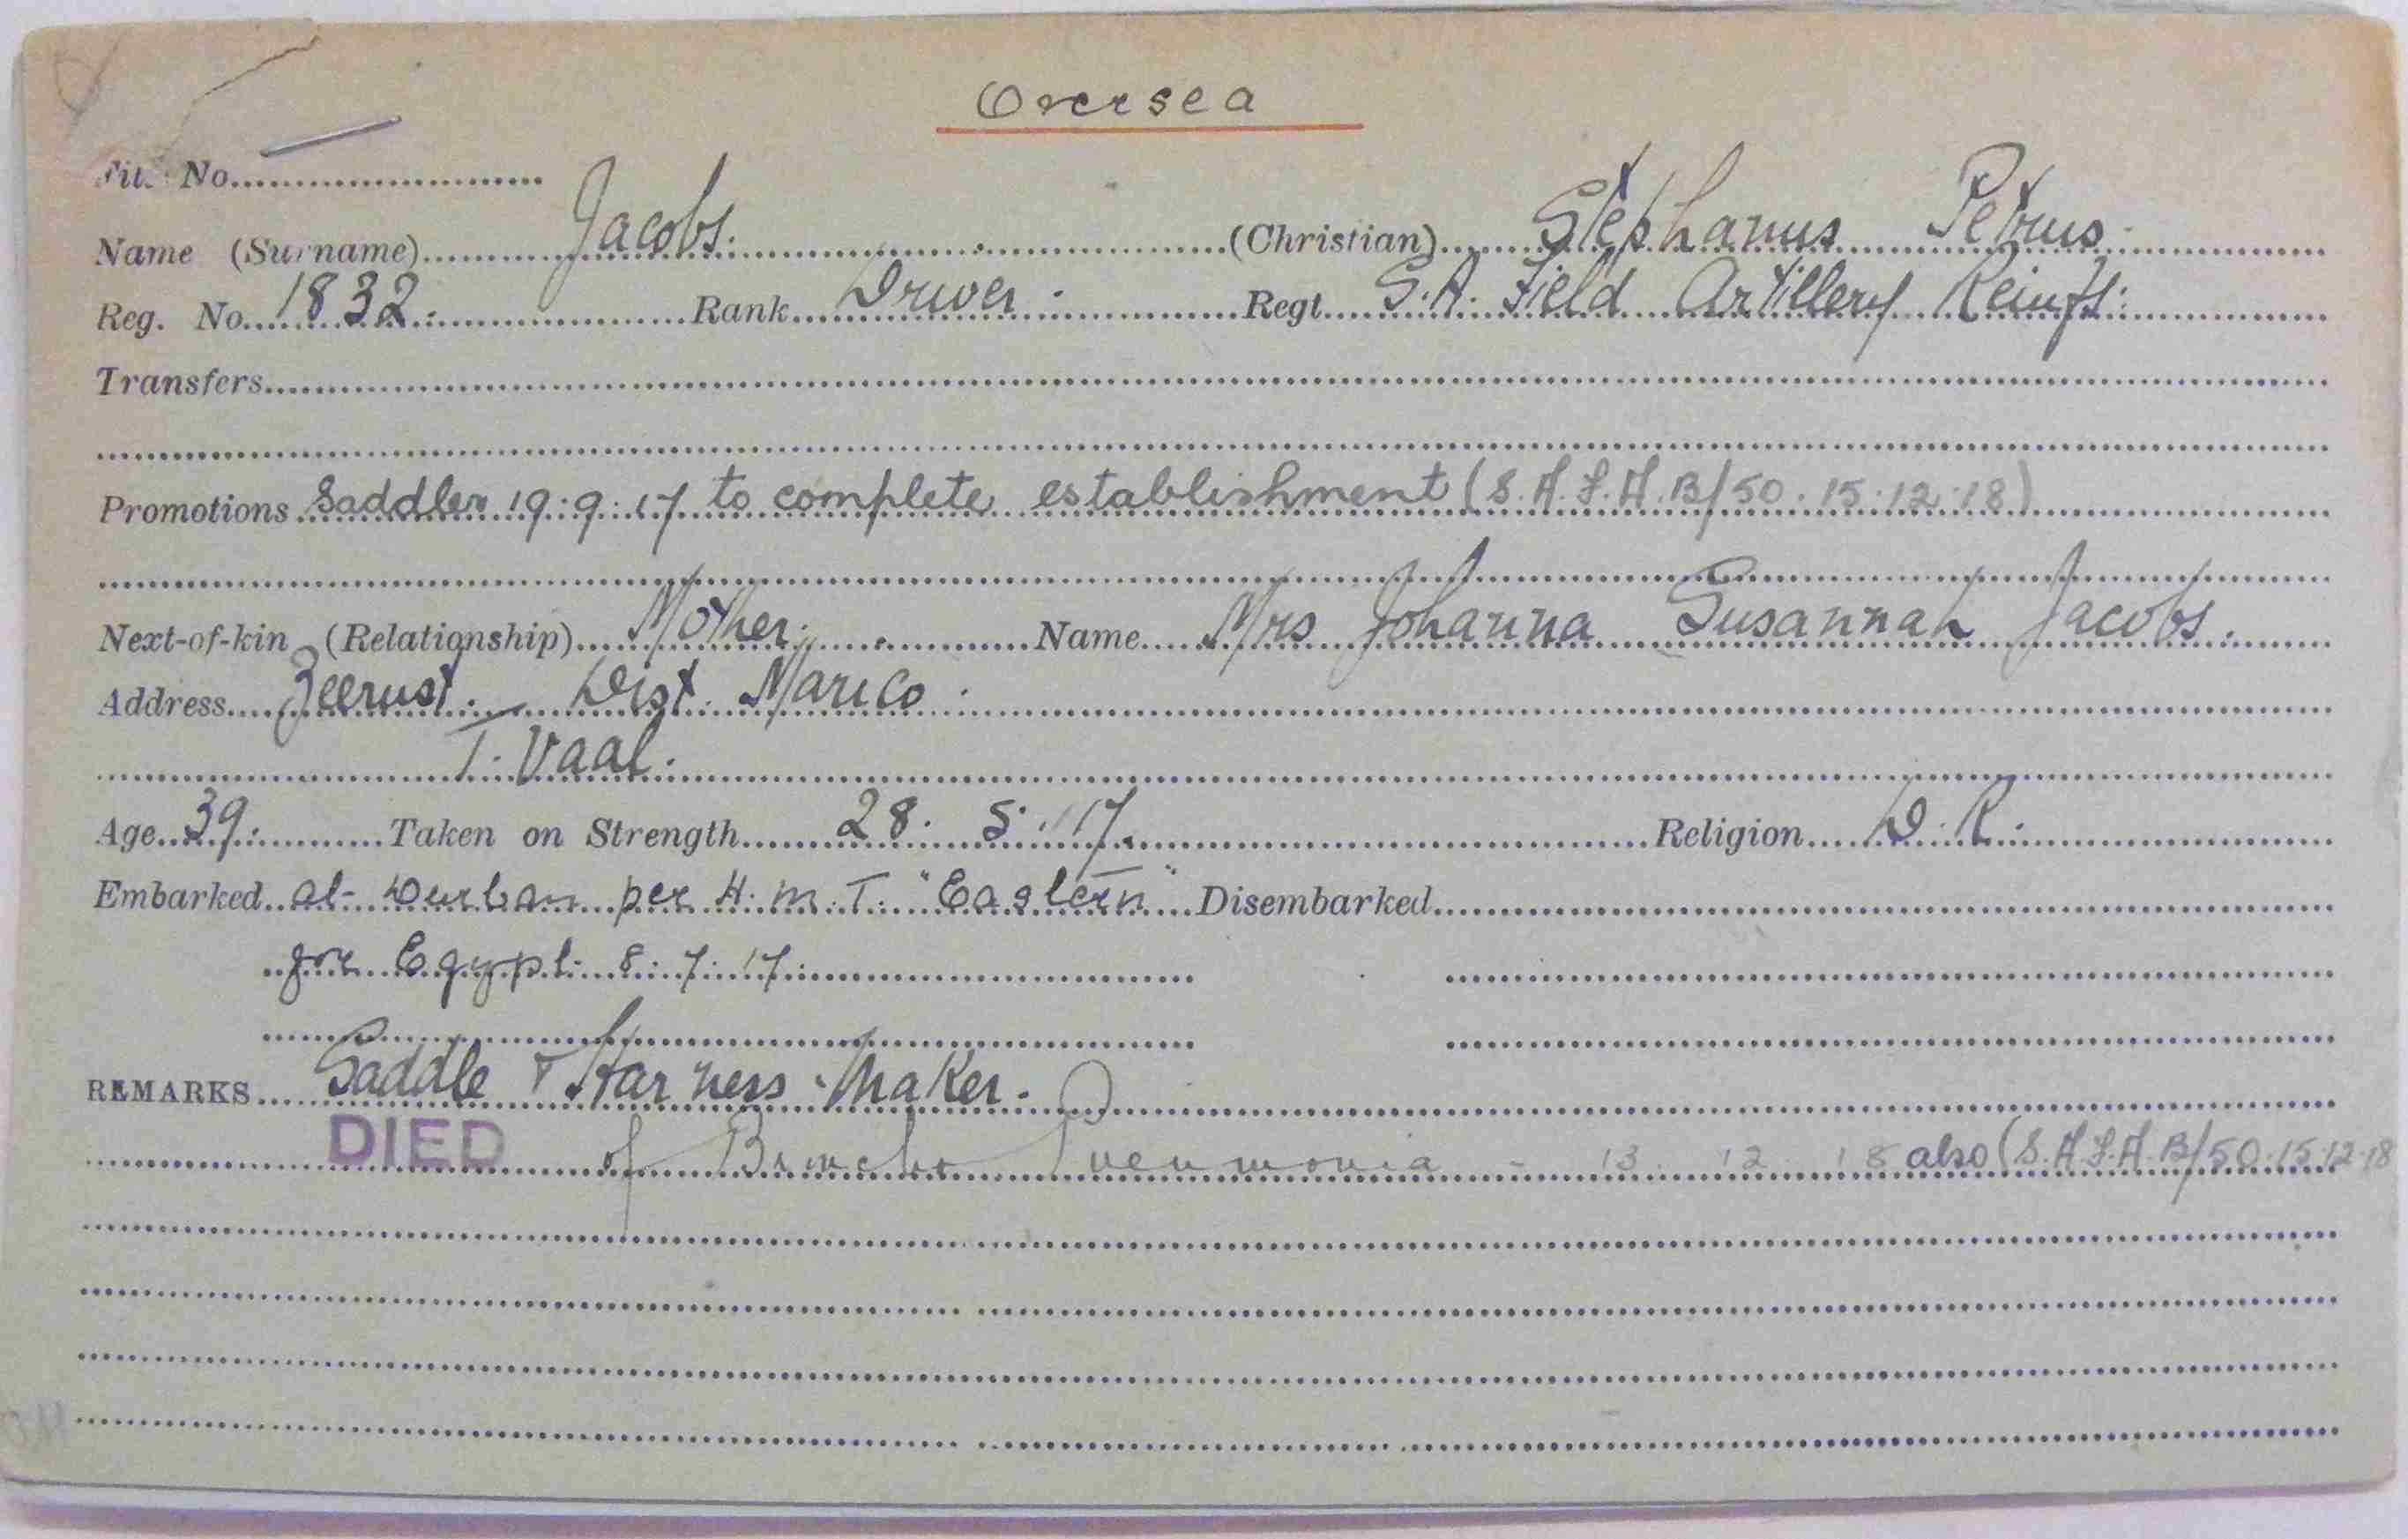 Oversea
No.
Name (Surname) Jacobs. (Christian) Stephanus Petrus.
Reg. No. 1832. Rank Driver. Regt. S.A. Field Artillery Reinfts.
Transfers
Promotions Saddler 19.9.17 to complete establishment (S.A.F.A.B/50.15.12.18)
Next-of-kin (Relationship) Mother. Name Mrs Johanna Susannah Jacobs.
Address Zeerust. Dist. Marico.
T. Vaal.
Age 39. Taken on Strength 28. 5. 17. Religion D.R.
Embarked at Durban per H.M.T. "Eastern" Disembarked
for Egypt. 8.7.17.
REMARKS Saddle & Harness Maker.
DIED of Broncho Pneumonia - 13 12 18 also (S.A.F.A.B/50.15.12.18